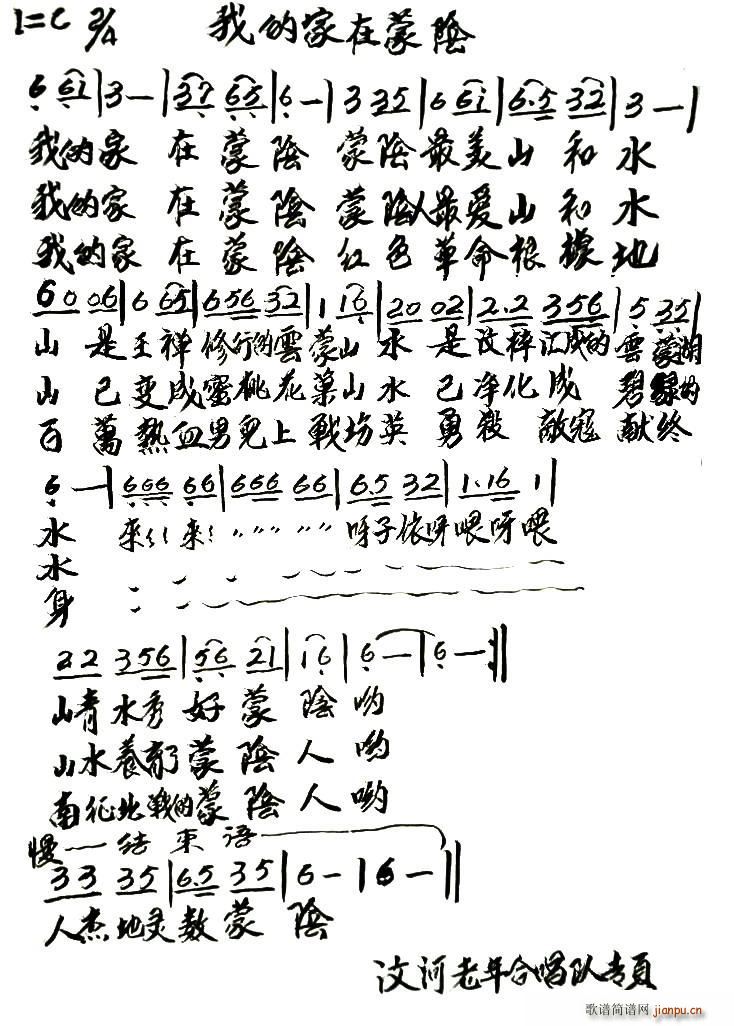 1=C 2/4 我的家在蒙陰
6 6i|3 —|37 65|6 —|3 35|6 6i|6.5 32|3 —|
我的家 在蒙陰 蒙陰最美山和水
我的家 在蒙陰 蒙陰人最爱山和水
我的家 在蒙陰 红色革命根據地
60 06|6 65|656 32|1 16|20 02|2.2 356|5 35|
山 是王禅修行的雲蒙山 水 是汶梓汇成的雲蒙湖
山 已变成蜜桃花菓山 水 已净化成 碧绿的
百 萬熱血男兒上戰场英 勇殺 敵寇 献终
6 —|666 66|666 66|6.5 32|1.16 1|
水 來 來 呀子依呀喂呀喂
水
身
22 356|56 21|16|6 —|6 —:||
山青水秀好蒙陰哟
山水養育了蒙陰人哟
南征北戰的蒙陰人哟
慢—结束语
33 35|6.5 35|6 —|6 —||
人杰地灵数蒙陰
汶河老年合唱队专頁
歌谱简谱网
jianpu.cn